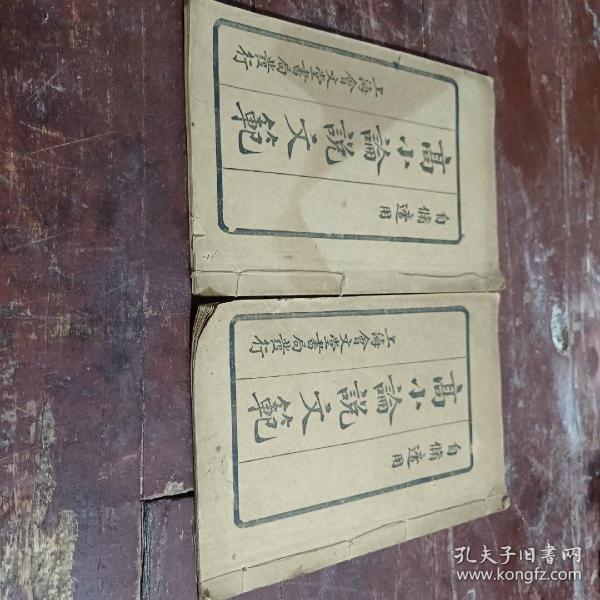 自脩適用
高小論説文範
上海會文堂書局發行
自脩適用
高小論説文範
上海會文堂書局發行
孔夫子旧书网
www.kongfz.com